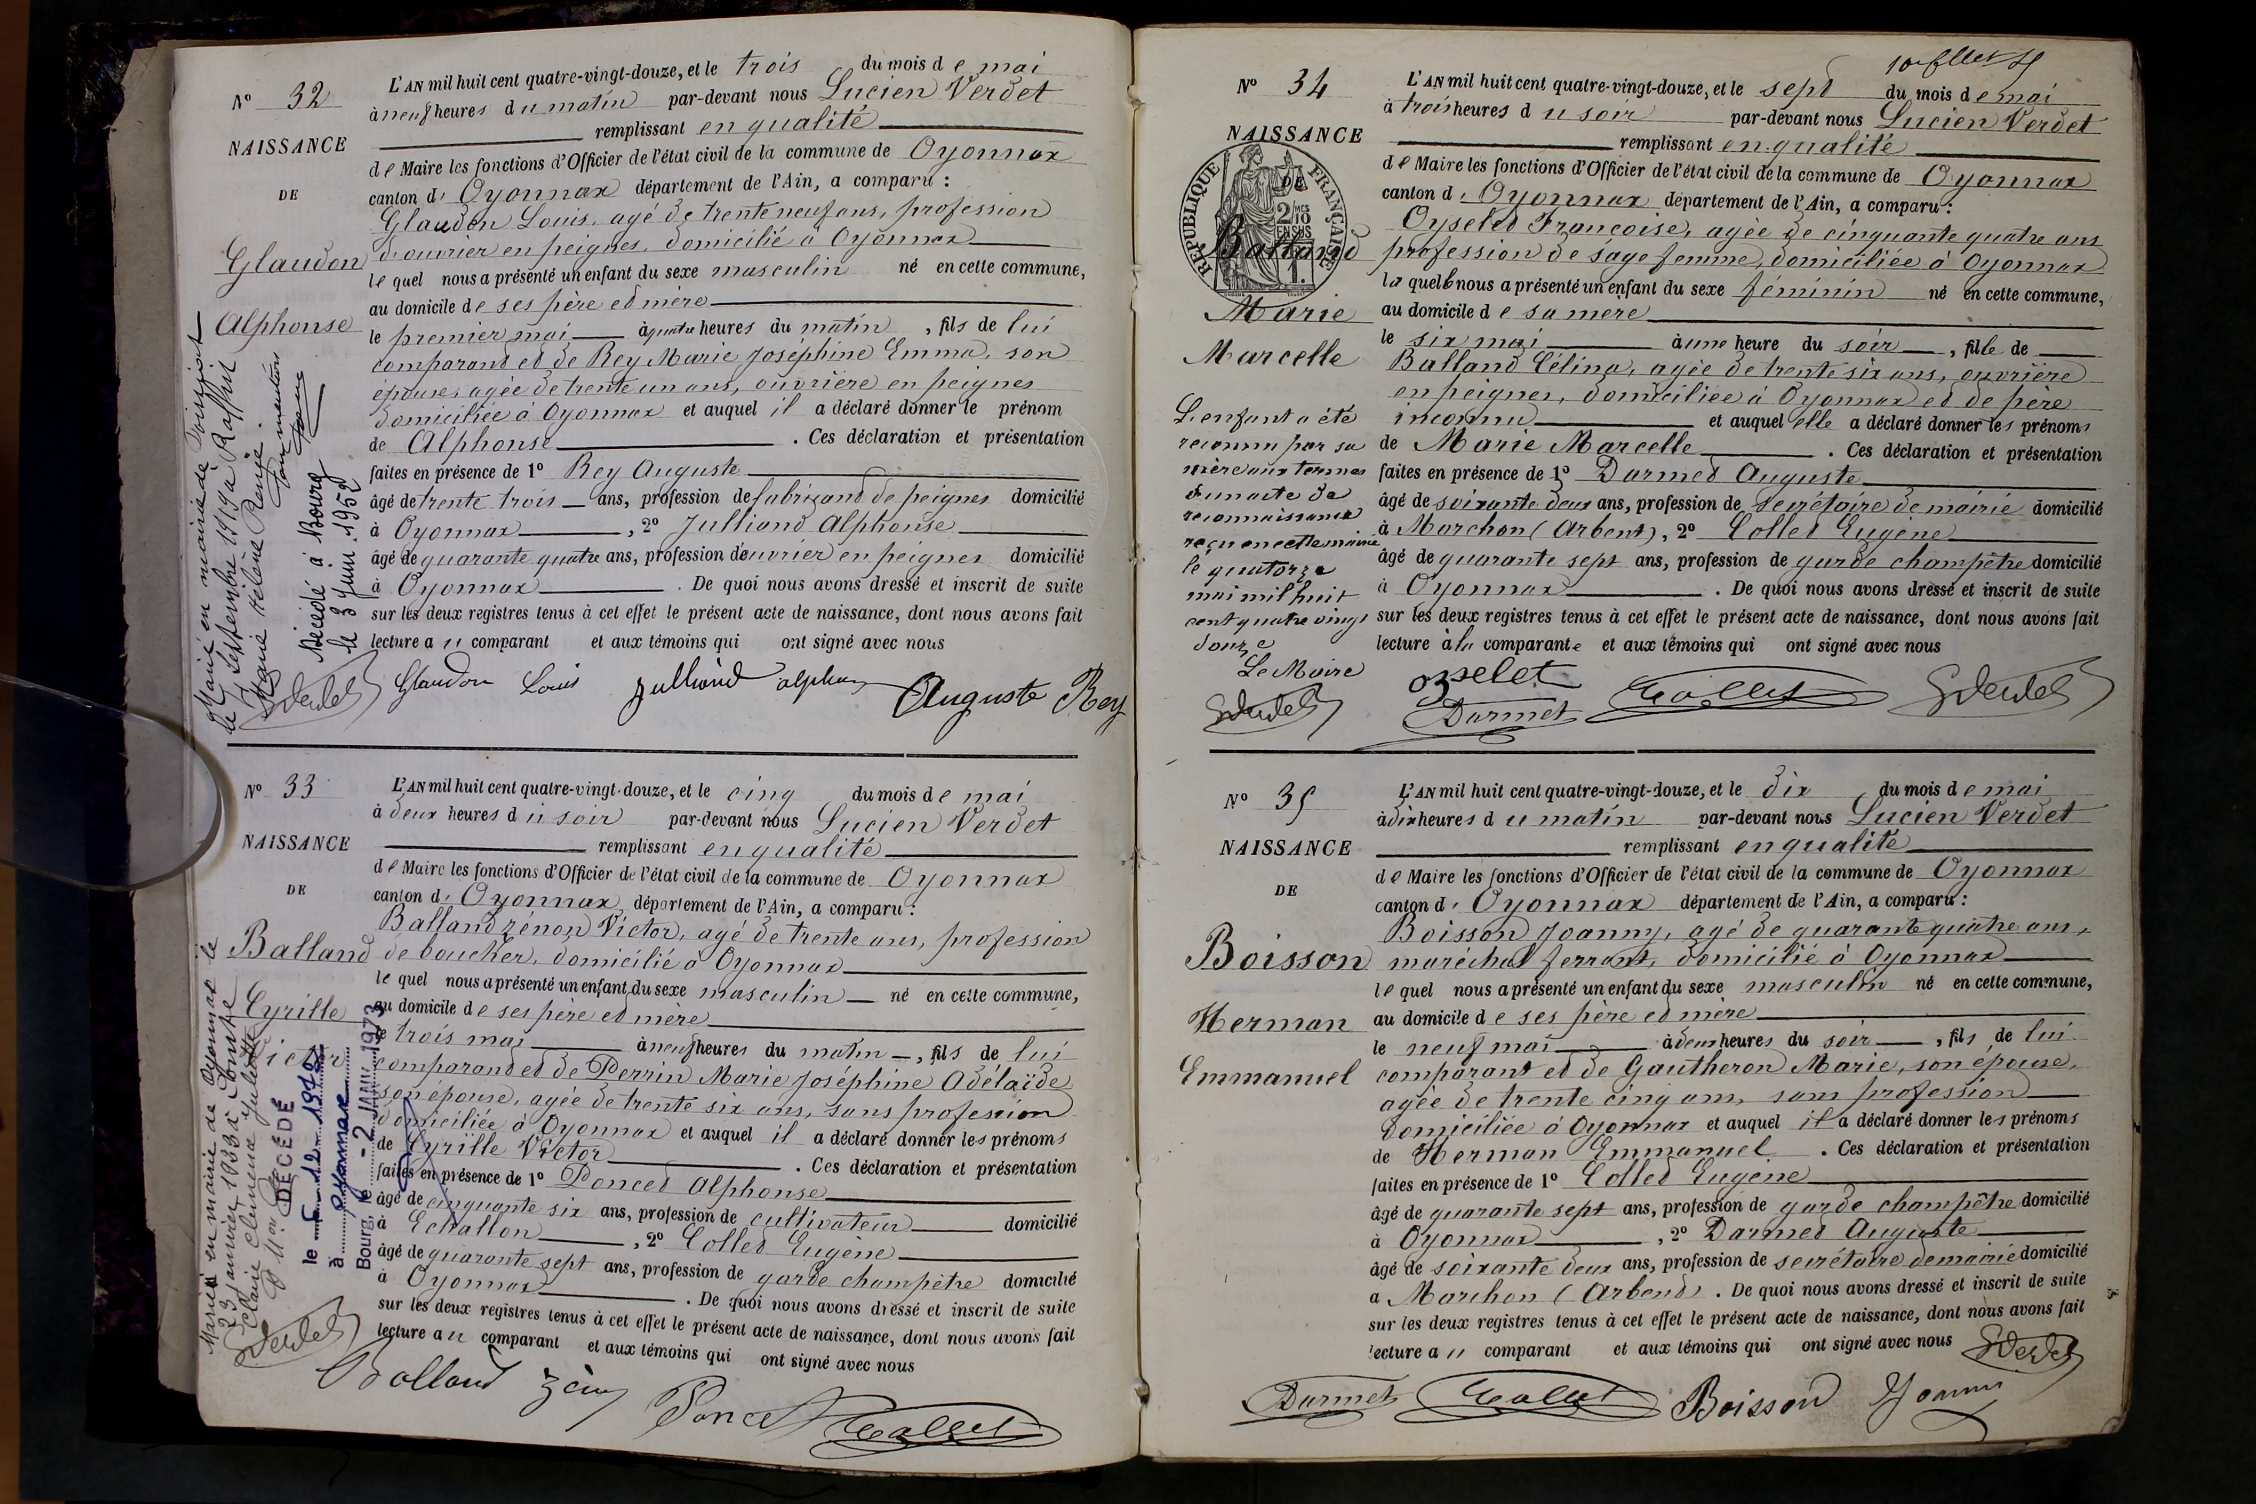 N° 32
NAISSANCE
DE
Glaudon
Alphonse
L'AN mil huit cent quatre-vingt-douze, et le trois du mois de mai
à neuf heures du matin par-devant nous Lucien Verdet
remplissant en qualité
de Maire les fonctions d'Officier de l'état civil de la commune de Oyonnax
canton d' Oyonnax département de l'Ain, a comparu :
Glaudon Louis, agé de trente neuf ans, profession
d'ouvrier en peignes, domicilié à Oyonnax
le quel nous a présenté un enfant du sexe masculin né en cette commune,
au domicile de ses père et mère
le premier mai à quatre heures du matin, fils de lui
comparant et de Rey Marie Joséphine Emma, son
épouse, agée de trente un ans, ouvrière en peignes
domiciliée à Oyonnax et auquel il a déclaré donner le prénom
de Alphonse . Ces déclaration et présentation
faites en présence de 1° Rey Auguste
âgé de trente trois ans, profession de fabricant de peignes domicilié
à Oyonnax , 2° Julliand Alphonse
âgé de quarante quatre ans, profession d'ouvrier en peignes domicilié
à Oyonnax . De quoi nous avons dressé et inscrit de suite
sur les deux registres tenus à cet effet le présent acte de naissance, dont nous avons fait
lecture au comparant et aux témoins qui ont signé avec nous
Glaudon Louis Julliand alphon Auguste Rey
Marié en mairie de
le septembre 1919 à Raffin
Marie Hélène Renée.
Pour mention
Décédé à Bourg
le 3 Juin 1952
N° 33
NAISSANCE
DE
Balland
Cyrille
Victor
L'AN mil huit cent quatre-vingt-douze, et le cinq du mois de mai
à deux heures du soir par-devant nous Lucien Verdet
remplissant en qualité
de Maire les fonctions d'Officier de l'état civil de la commune de Oyonnax
canton d' Oyonnax département de l'Ain, a comparu :
Balland Zénon Victor, agé de trente ans, profession
de boucher, domicilié à Oyonnax
le quel nous a présenté un enfant du sexe masculin né en cette commune,
au domicile de ses père et mère
le trois mai à neuf heures du matin, fils de lui
comparant et de Perrin Marie Joséphine Adélaïde
son épouse, agée de trente six ans, sans profession
domiciliée à Oyonnax et auquel il a déclaré donner les prénoms
de Cyrille Victor . Ces déclaration et présentation
faites en présence de 1° Poncet Alphonse
âgé de cinquante six ans, profession de cultivateur domicilié
à Echallon , 2° Collet Eugène
âgé de quarante sept ans, profession de garde champêtre domicilié
à Oyonnax . De quoi nous avons dressé et inscrit de suite
sur les deux registres tenus à cet effet le présent acte de naissance, dont nous avons fait
lecture au comparant et aux témoins qui ont signé avec nous
Balland Poncet Collet
Marié en mairie de Oyonnax le
23 janvier 1933 à
Claire Clémence Juliette
DÉCÉDÉ
le 5.12.1972
à Oyonnax
Bourg, le - 2 JANV 1973
N° 34
NAISSANCE
DE
RÉPUBLIQUE FRANÇAISE
2/10 MES EN SUS
Balland
Marie
Marcelle
L'AN mil huit cent quatre-vingt-douze, et le sept du mois de mai
à trois heures du soir par-devant nous Lucien Verdet
remplissant en qualité
de Maire les fonctions d'Officier de l'état civil de la commune de Oyonnax
canton d' Oyonnax département de l'Ain, a comparu :
Oyselet Françoise, agée de cinquante quatre ans
profession de sage femme, domiciliée à Oyonnax
la quelle nous a présenté un enfant du sexe féminin né en cette commune,
au domicile de sa mère
le six mai à une heure du soir, fille de
Balland Célina, agée de trente six ans, ouvrière
en peignes, domiciliée à Oyonnax et de père
inconnu et auquel elle a déclaré donner les prénoms
de Marie Marcelle . Ces déclaration et présentation
faites en présence de 1° Darmet Auguste
âgé de soixante deux ans, profession de secrétaire de mairie domicilié
à Marchon (Arbent), 2° Collet Eugène
âgé de quarante sept ans, profession de garde champêtre domicilié
à Oyonnax . De quoi nous avons dressé et inscrit de suite
sur les deux registres tenus à cet effet le présent acte de naissance, dont nous avons fait
lecture à la comparante et aux témoins qui ont signé avec nous
L'enfant a été
reconnu par sa
mère aux termes
d'un acte de
reconnaissance
reçu en cette mairie
le quatorze
mai mil huit
cent quatre vingt
douze
Le Maire
Oyselet
Darmet Collet
N° 35
NAISSANCE
DE
Boisson
Herman
Emmanuel
L'AN mil huit cent quatre-vingt-douze, et le dix du mois de mai
à dix heures du matin par-devant nous Lucien Verdet
remplissant en qualité
de Maire les fonctions d'Officier de l'état civil de la commune de Oyonnax
canton d' Oyonnax département de l'Ain, a comparu :
Boisson Joanny, agé de quarante quatre ans,
maréchal ferrant, domicilié à Oyonnax
le quel nous a présenté un enfant du sexe masculin né en cette commune,
au domicile de ses père et mère
le neuf mai à deux heures du soir, fils de lui
comparant et de Gautheron Marie, son épouse,
agée de trente cinq ans, sans profession
domiciliée à Oyonnax et auquel il a déclaré donner les prénoms
de Herman Emmanuel . Ces déclaration et présentation
faites en présence de 1° Collet Eugène
âgé de quarante sept ans, profession de garde champêtre domicilié
à Oyonnax , 2° Darmet Auguste
âgé de soixante deux ans, profession de secrétaire de mairie domicilié
à Marchon (Arbent) . De quoi nous avons dressé et inscrit de suite
sur les deux registres tenus à cet effet le présent acte de naissance, dont nous avons fait
lecture au comparant et aux témoins qui ont signé avec nous
Darmet Collet Boisson